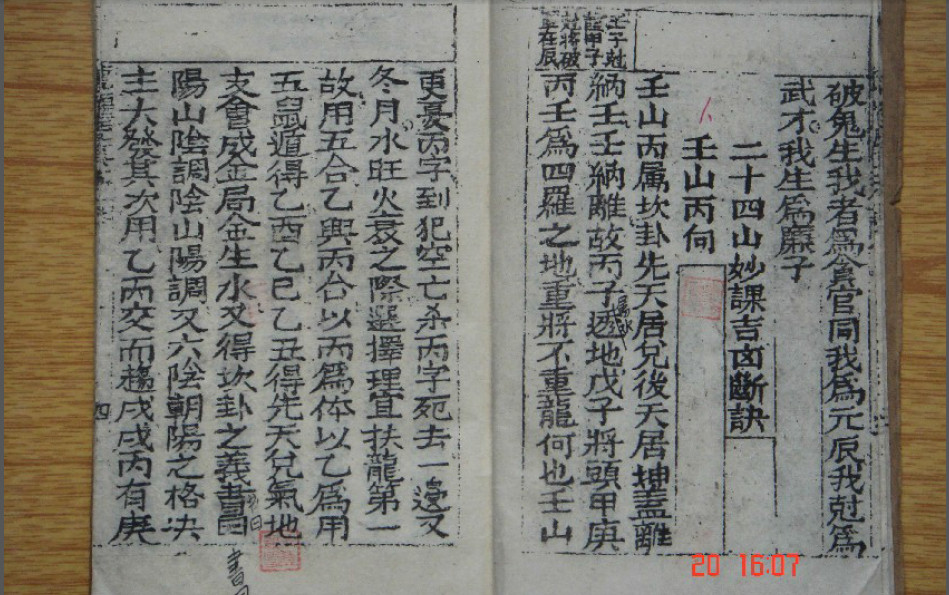 破鬼生我者爲食官同我爲元辰我尅爲
武才我生爲廉子
二十四山妙課吉凶斷訣
壬山丙向
壬山丙属坎卦先天居兌後天居坤盖離
納壬壬納離故丙子透地戊子將頭甲庚
丙壬爲四羅之地重將不重龍何也壬山
壬子尅
甲子
尅將破
軍在辰
更憂丙字到犯空亡杀丙字死去一邊又
冬月水旺火衰之際選擇理宜扶龍第一
故用五合乙與丙合以丙爲体以乙爲用
五鼠遁得乙酉乙巳乙丑得先天兌氣地
支會成金局金生水又得坎卦之義書曰
陽山陰調陰山陽調又六陰朝陽之格决
主大發其次用乙丙交而趨戌戌丙有庚
四
20 16:07